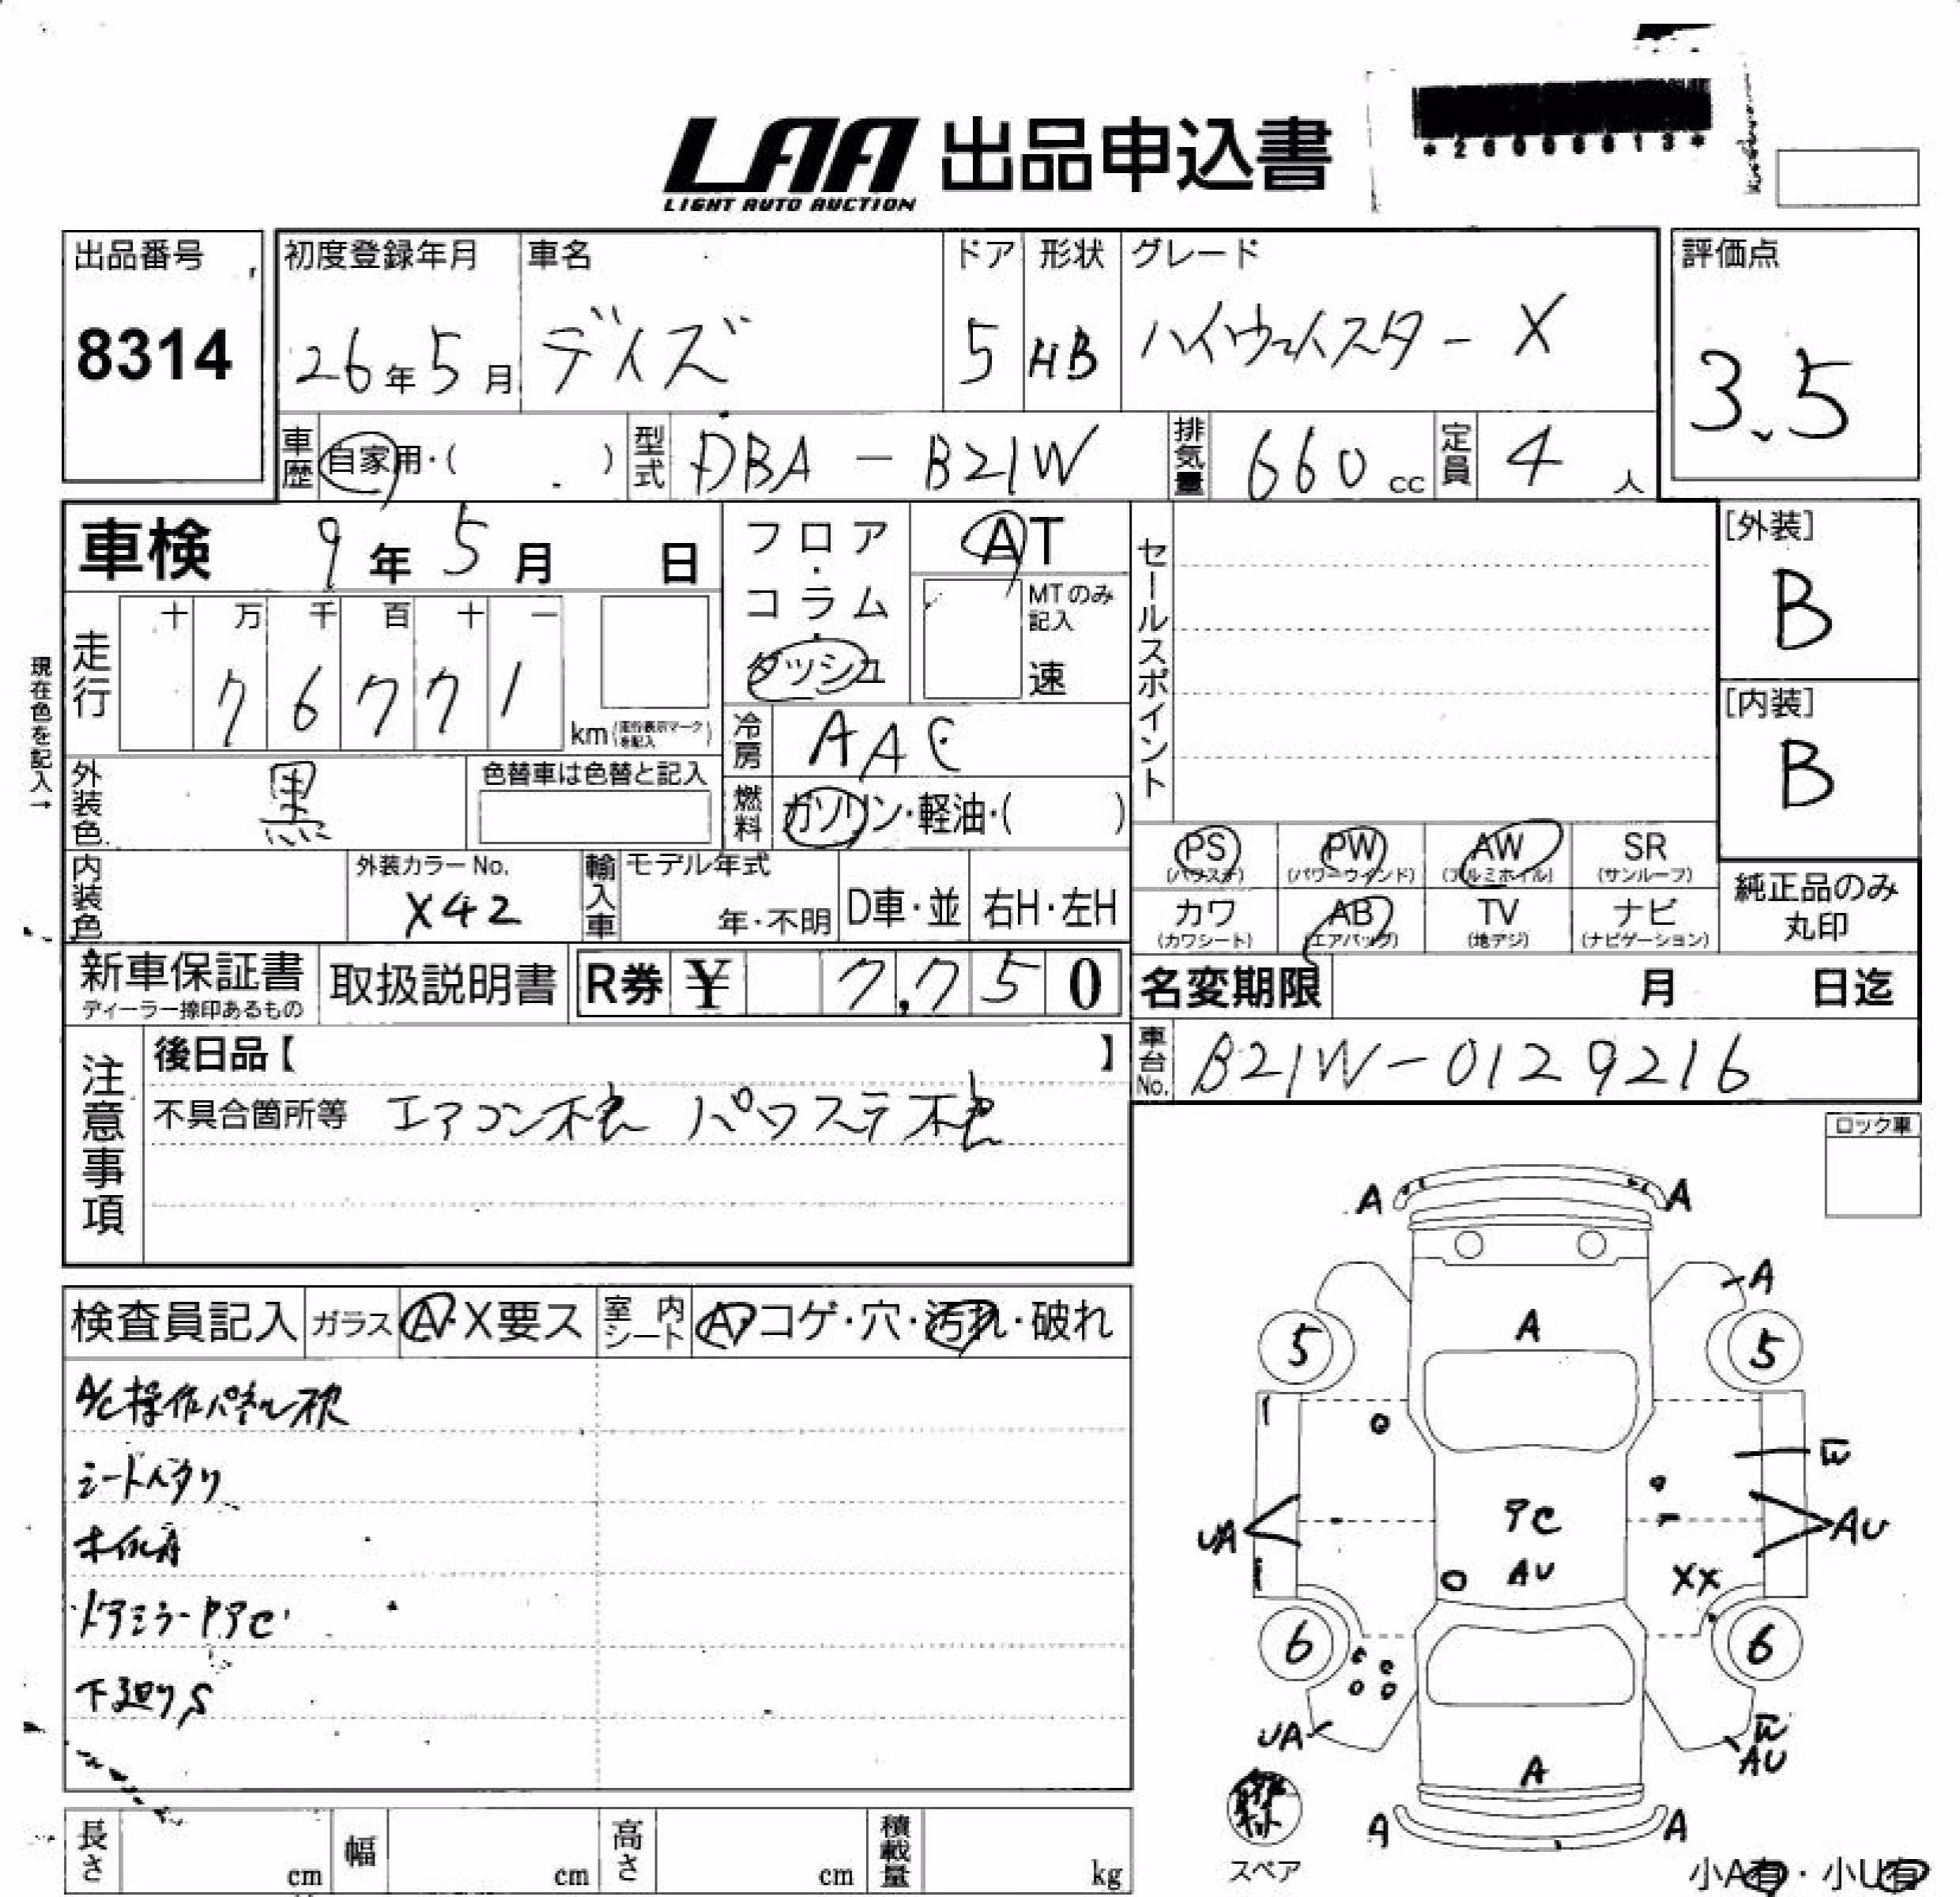 LAA 出品申込書
LIGHT AUTO AUCTION
出品番号 初度登録年月 車名 ドア 形状 グレード 評価点
8314 26年5月 デイズ 5 HB ハイウェイスターX 3.5
車歴 自家用・( ) 型式 DBA-B21W 排気量 660cc 定員 4人
車検 9年5月 日 フロア・コラム・ダッシュ AT
MTのみ記入 速
セールスポイント
[外装] B
[内装] B
現在色を記入→
走行 十 万 千 百 十 一
76771 km (走行表示マークを記入)
冷房 AAC
外装色 黒 色替車は色替と記入
燃料 ガソリン・軽油・( )
PS (パワステ) PW (パワーウインド) AW (アルミホイル) SR (サンルーフ)
カワ (カワシート) AB (エアバッグ) TV (地デジ) ナビ (ナビゲーション)
純正品のみ丸印
内装色 外装カラーNo. X42 輸入車 モデル年式 年・不明 D車・並 右H・左H
新車保証書 ディーラー捺印あるもの 取扱説明書 R券 ¥ 7,750
名変期限 月 日迄
車台No. B21W-0129216
注意事項
後日品【 】
不具合箇所等 エアコン不良 パワステ不良
ロック車
検査員記入 ガラス A・X要ス 室内シート A・コゲ・穴・汚れ・破れ
A/C操作パネル欠
シートヘタリ
ドアミラー
下廻りS
A A
A
A
5 5
UA AU
AU
XX
6 6
UA AU
A
A A
スペア
小A有・小U有
長さ cm 幅 cm 高さ cm 積載量 kg